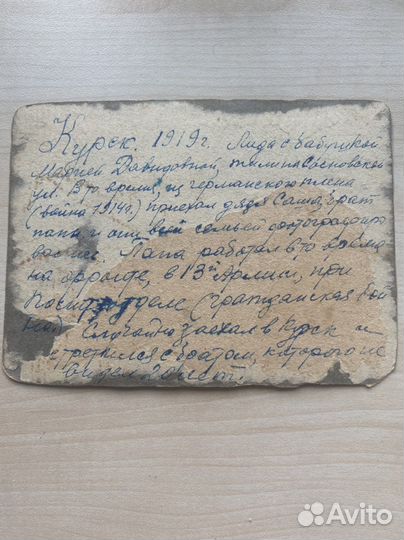 Курск. 1919 г. Лида с бабушкой
Марией Давидовной, жили на Сосновской
ул. В то время, из германского плена
(война 1914 г.) приехал дядя Саша, брат
папы и они всей семьей фотографиро
вались. Папа работал в то время
на фронте, в 13ой Армии, при
Политотделе (Гражданская вой
на). Случайно заехал в Курск и
встретился с братом, которого не
видел 20 лет.
Avito